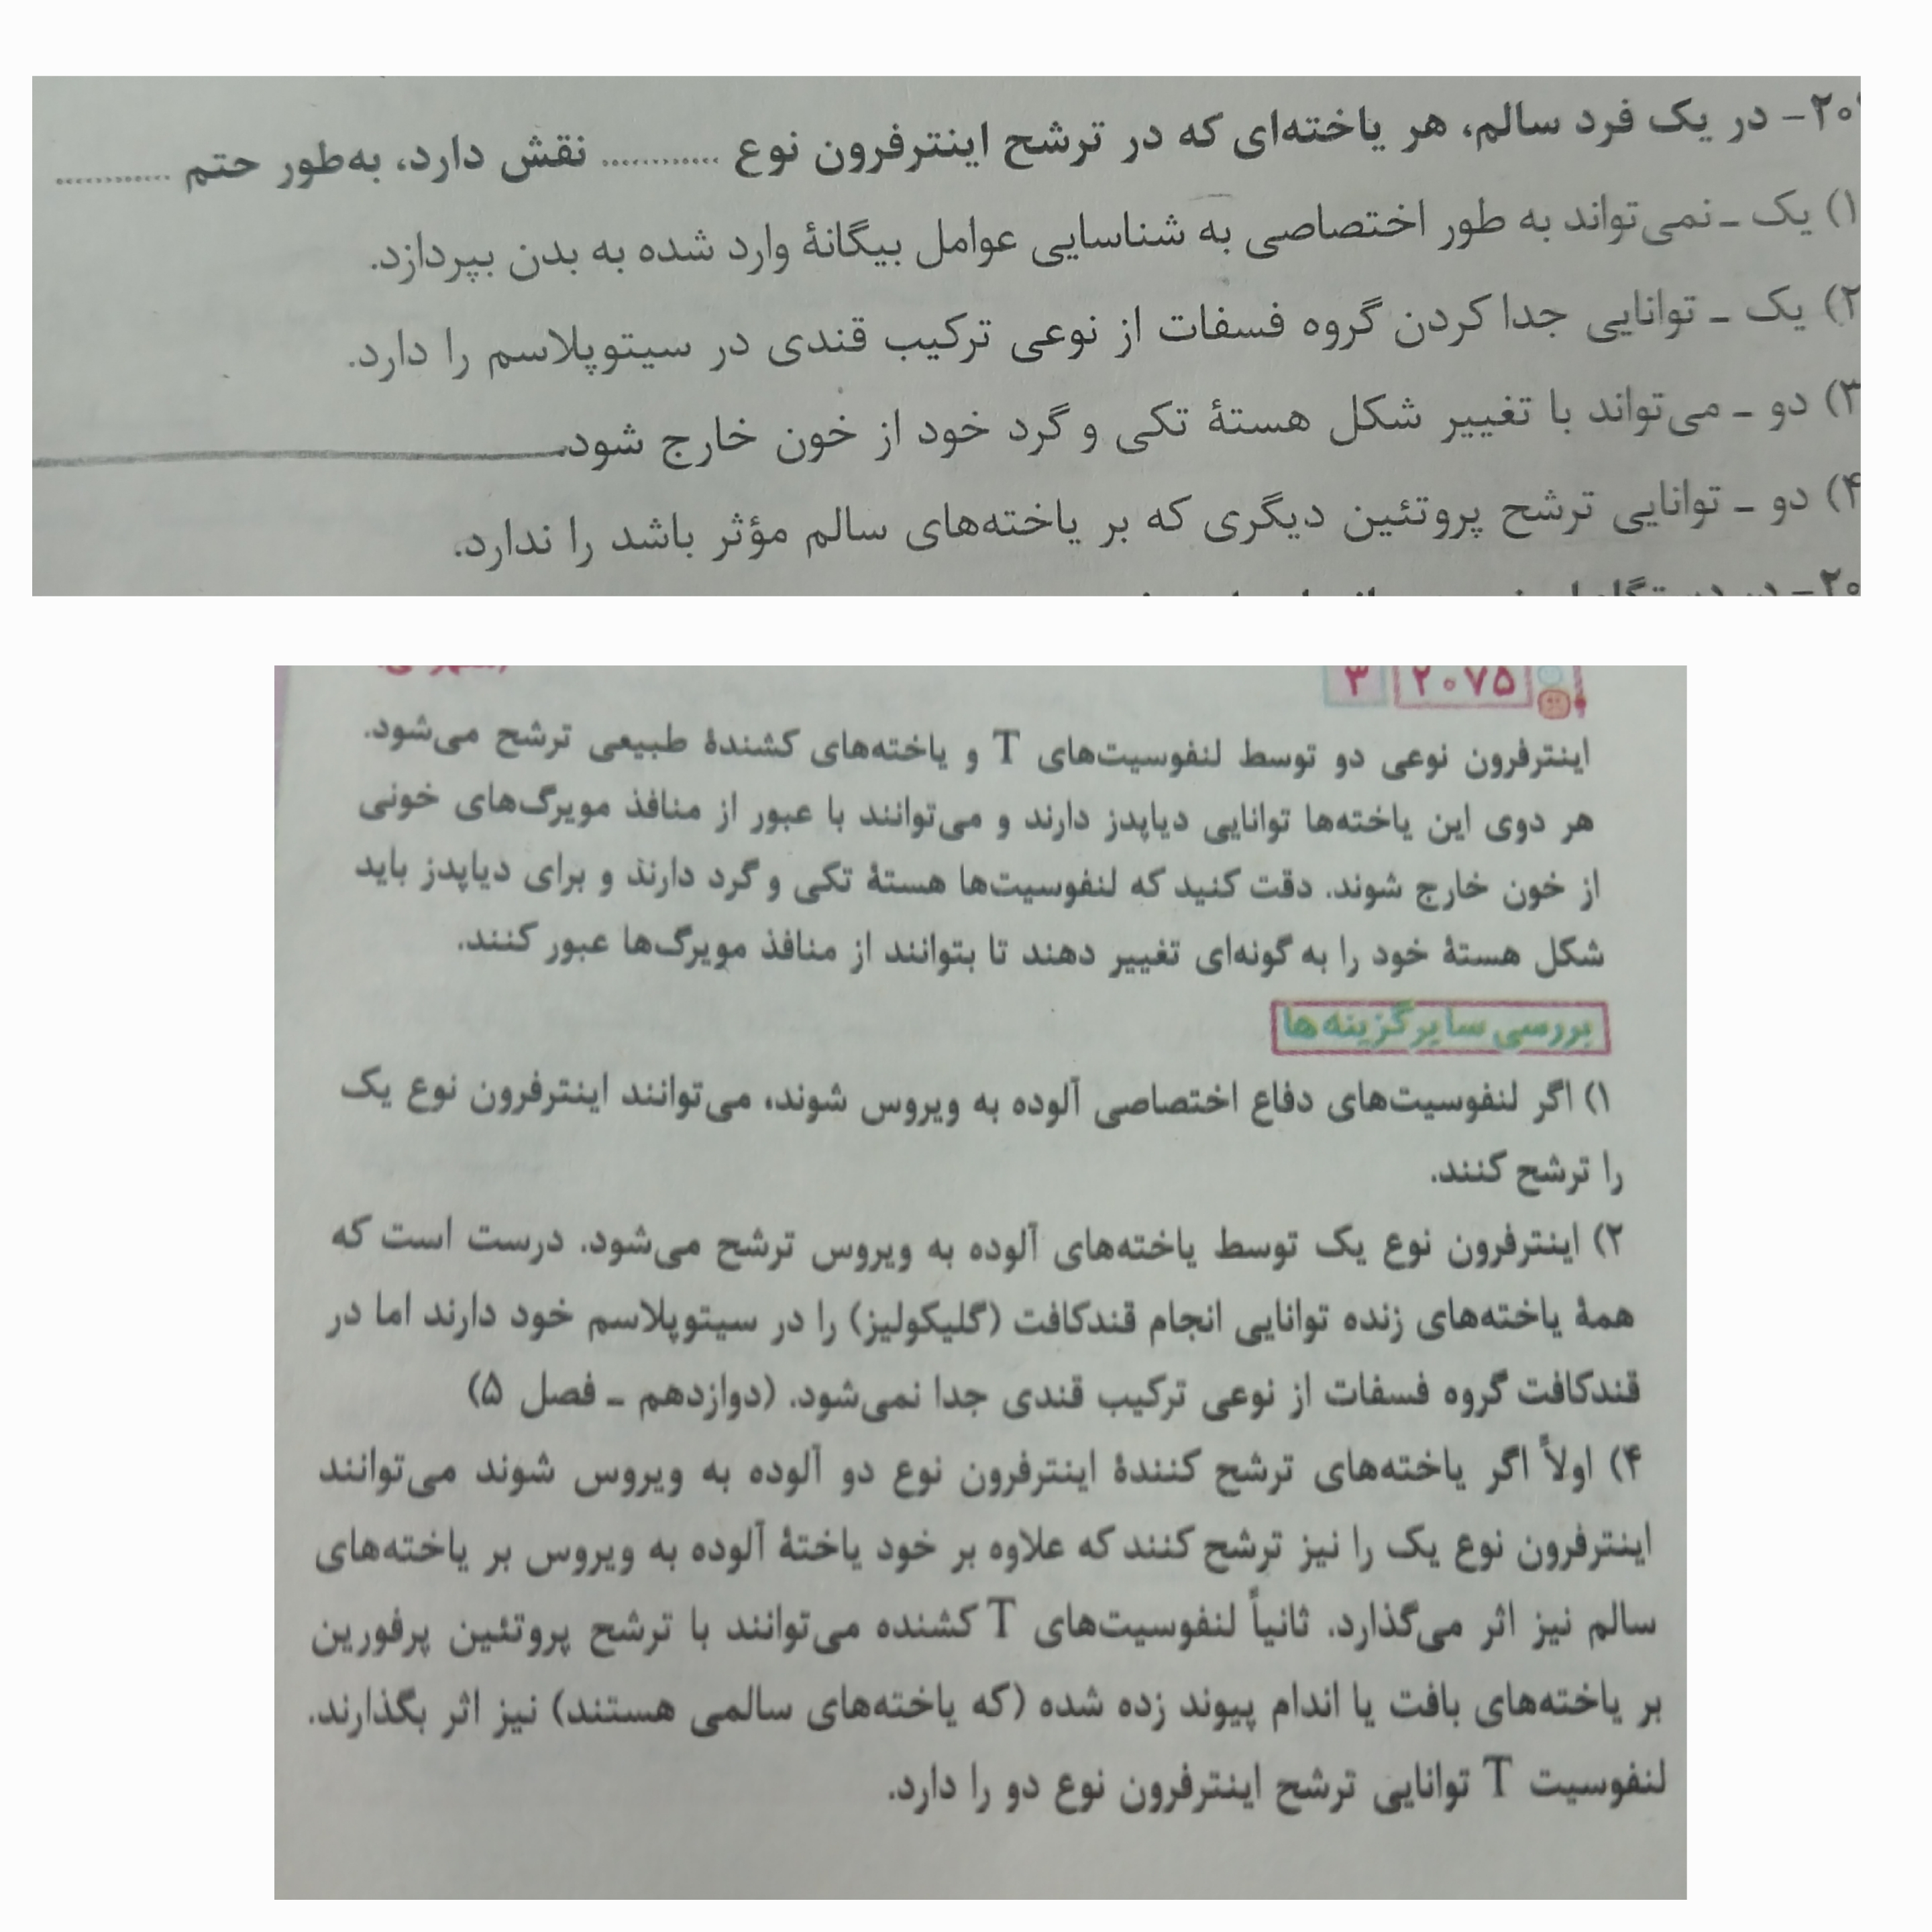 ۲۰- در یک فرد سالم، هر یاخته‌ای که در ترشح اینترفرون نوع ............ نقش دارد، به‌طور حتم ............
۱) یک ـ نمی‌تواند به طور اختصاصی به شناسایی عوامل بیگانهٔ وارد شده به بدن بپردازد.
۲) یک ـ توانایی جدا کردن گروه فسفات از نوعی ترکیب قندی در سیتوپلاسم را دارد.
۳) دو ـ می‌تواند با تغییر شکل هستهٔ تکی و گرد خود از خون خارج شود.
۴) دو ـ توانایی ترشح پروتئین دیگری که بر یاخته‌های سالم مؤثر باشد را ندارد.
۲۰-
۲۰۷۵ ۳
اینترفرون نوعی دو توسط لنفوسیت‌های T و یاخته‌های کشندهٔ طبیعی ترشح می‌شود.
هر دوی این یاخته‌ها توانایی دیاپدز دارند و می‌توانند با عبور از منافذ مویرگ‌های خونی
از خون خارج شوند. دقت کنید که لنفوسیت‌ها هستهٔ تکی و گرد دارند و برای دیاپدز باید
شکل هستهٔ خود را به گونه‌ای تغییر دهند تا بتوانند از منافذ مویرگ‌ها عبور کنند.
بررسی سایر گزینه ها
۱) اگر لنفوسیت‌های دفاع اختصاصی آلوده به ویروس شوند، می‌توانند اینترفرون نوع یک
را ترشح کنند.
۲) اینترفرون نوع یک توسط یاخته‌های آلوده به ویروس ترشح می‌شود. درست است که
همهٔ یاخته‌های زنده توانایی انجام قندکافت (گلیکولیز) را در سیتوپلاسم خود دارند اما در
قندکافت گروه فسفات از نوعی ترکیب قندی جدا نمی‌شود. (دوازدهم ـ فصل ۵)
۴) اولاً اگر یاخته‌های ترشح کنندهٔ اینترفرون نوع دو آلوده به ویروس شوند می‌توانند
اینترفرون نوع یک را نیز ترشح کنند که علاوه بر خود یاختهٔ آلوده به ویروس بر یاخته‌های
سالم نیز اثر می‌گذارد. ثانیاً لنفوسیت‌های T کشنده می‌توانند با ترشح پروتئین پرفورین
بر یاخته‌های بافت یا اندام پیوند زده شده (که یاخته‌های سالمی هستند) نیز اثر بگذارند.
لنفوسیت T توانایی ترشح اینترفرون نوع دو را دارد.